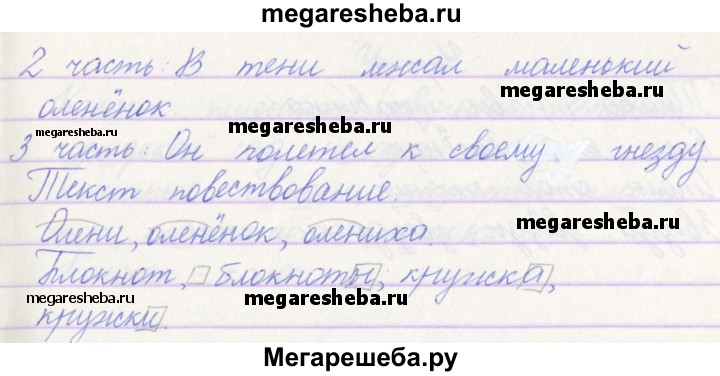 megaresheba.ru
2 часть: В тени лежал маленький
оленёнок.
megaresheba.ru
megaresheba.ru
3 часть: Он полетел к своему гнезду.
Текст повествование.
megaresheba.ru
Олени, оленёнок, олениха.
Блокнот, блокноты, кружка,
megaresheba.ru
megaresheba.ru
кружки.
Мегарешеба.ру